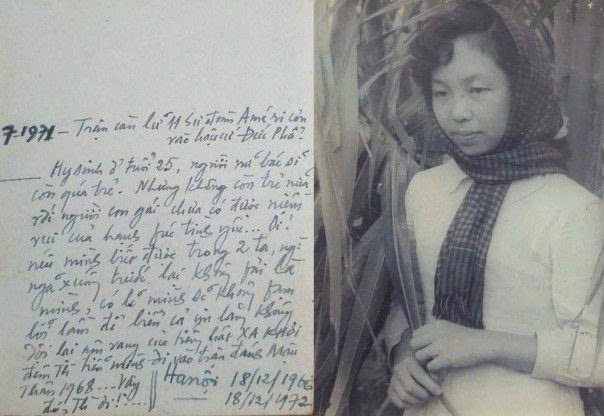 7.1971 – Trận càn lữ 11 Sư đoàn Amêricơn
vào hậu cứ Đức Phổ?
Hy sinh ở tuổi 25, người nữ bác sĩ
còn quá trẻ. Nhưng không còn trẻ nữa
với người con gái chưa có được niềm
vui của hạnh phúc tình yêu... Ôi!
nếu mình biết được trong 2 ta, ng
ngã xuống trước lại không phải là
mình, có lẽ mình sẽ không
lỗi lầm để biển cả im lặng không
dội lại âm vang của tiếng hát XA KHƠI
đêm Th tiễn mình đi vào trận đánh Mậu
Thân 1968... Vậy
đó, Th ơi!...
Hanội 18/12/1966
18/12/1972